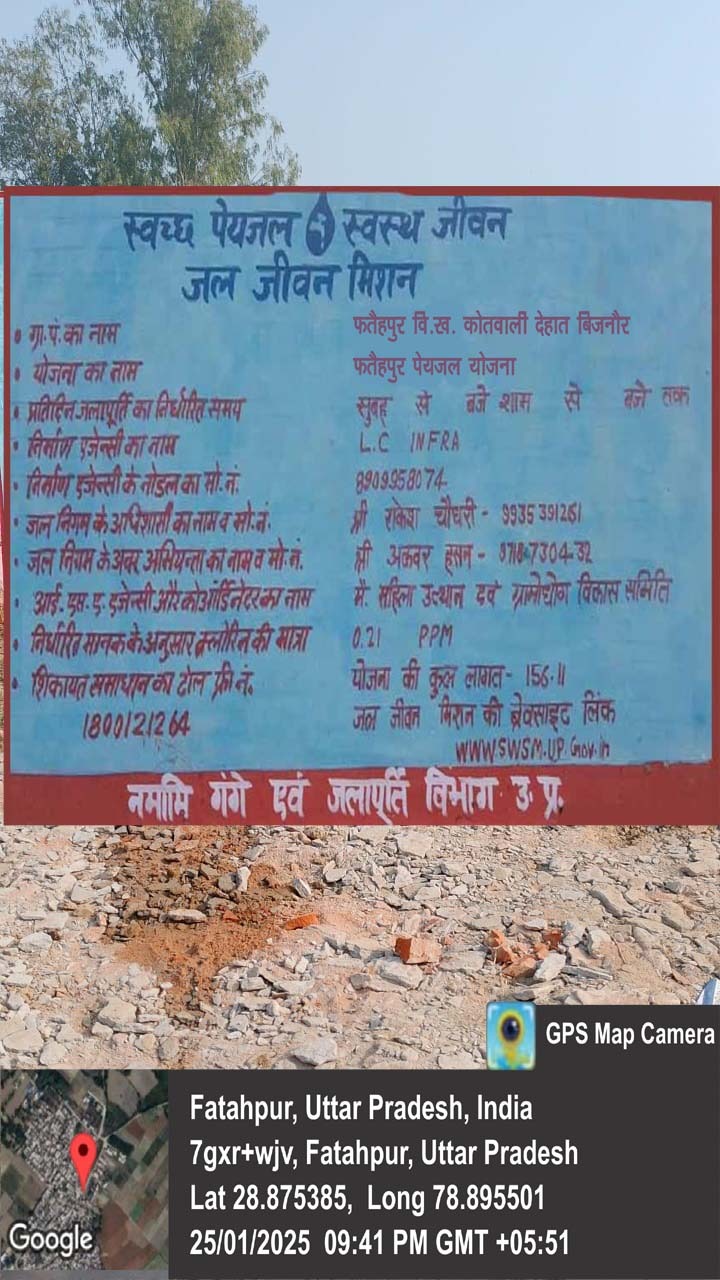 स्वच्छ पेयजल स्वस्थ जीवन
जल जीवन मिशन
• ग्रा.पं.का नाम फतैहपुर वि.ख. कोतवाली देहात बिजनौर
• योजना का नाम फतैहपुर पेयजल योजना
• प्रतिदिन जलापूर्ति का निर्धारित समय सुबह से बजे शाम से बजे तक
• निर्माण एजेन्सी का नाम L.C INFRA
• निर्माण एजेन्सी के नोडल का मो.नं. 8909958074
• जल निगम के अधिशासी का नाम व मो.नं. श्री राकेश चौधरी - 9935391261
• जल निगम के अवर अभियन्ता का नाम व मो.नं. श्री अकबर हसन - 9718-7304-32
• आई.एस.ए. एजेन्सी और कोऑर्डिनेटर का नाम मै. महिला उत्थान एवं ग्रामोद्योग विकास समिति
• निर्धारित मानक के अनुसार क्लोरिन की मात्रा 0.21 PPM
• शिकायत समाधान का टोल फ्री नं. योजना की कुल लागत - 156.11
1800121264 जल जीवन मिशन की बेवसाइट लिंक
WWW.SWSM.UP.Gov.in
नमामि गंगे एवं जलापूर्ति विभाग उ. प्र.
GPS Map Camera
Fatahpur, Uttar Pradesh, India
7gxr+wjv, Fatahpur, Uttar Pradesh
Lat 28.875385, Long 78.895501
25/01/2025 09:41 PM GMT +05:51
Google